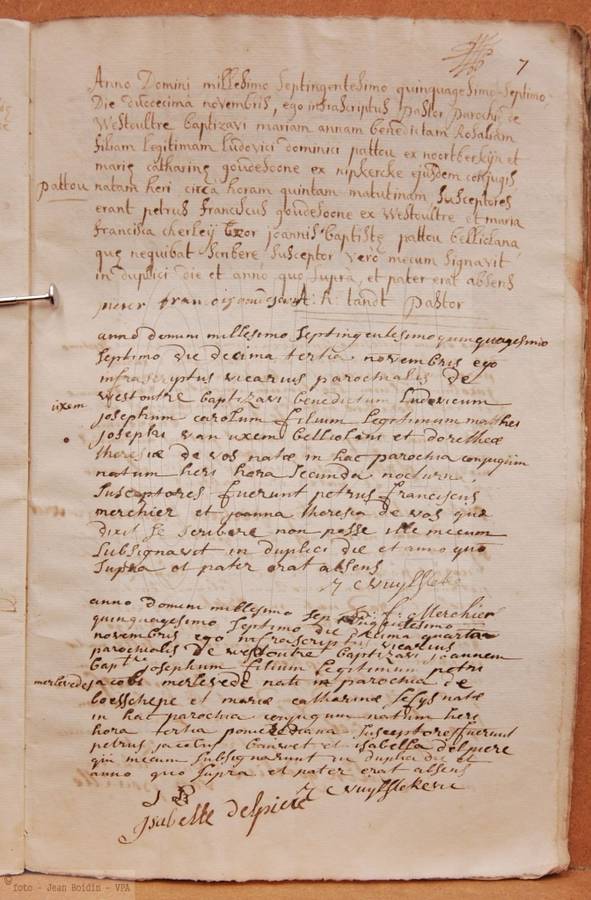 7
Anno Domini millesimo septingentesimo quinquagesimo septimo
Die duodecima novembris, ego infrascriptus pastor parochiæ de
Westoultre baptizavi mariam annam benedictam Rosaliam
filiam legitimam ludovici dominici pattou ex noortberkijn et
mariæ catharinæ goudesoone ex nipkercke ejusdem conjugis
pattou
natam heri circa horam quintam matutinam, susceptores
erant petrus franciscus goudesoone ex Westoultre et maria
francisca cherleij uxor joannis baptistæ pattou belliolana
quæ nequibat scribere, susceptor vero mecum signavit
in duplici die et anno quo supra, et pater erat absens
pieter fran pastor
anno domini millesimo septingentesimo quinquagesimo
septimo die decima tertia novembris ego
infrascriptus vicarius parochialis de
westoutre baptizavi benedictum Ludovicum
uxem
josephum carolum filium legitimum matthei
josephi van uxem belliolani et dorotheæ
theresiæ de vos natæ in hac parochia conjugum
natum heri hora secunda nocturna.
susceptores fuerunt petrus franciscus
merchier et joanna theresia de vos quæ
dixit se scribere non posse ille mecum
subsignavit in duplici die et anno quo
supra et pater erat absens
J C wuylsteke
p: f: Merchier
anno domini millesimo septingentesimo
quinquagesimo septimo die decima quarta
novembris ego infrascriptus vicarius
parochialis de westoutre baptizavi joannem
bapt josephum filium legitimum petri
merlevede
jacobi merlevede nati in parochia de
boesschepe et mariæ catharinæ natæ
in hac parochia conjugum natum heri
hora tertia pomeridiana susceptores fuerunt
petrus jacobus bauwet et isabella delpiere
qui mecum subsignarunt in duplici die et
anno quo supra et pater erat absens
J B
J C wuylsteker
Isabelle delpiere
©foto - Jean Boidin - VPA